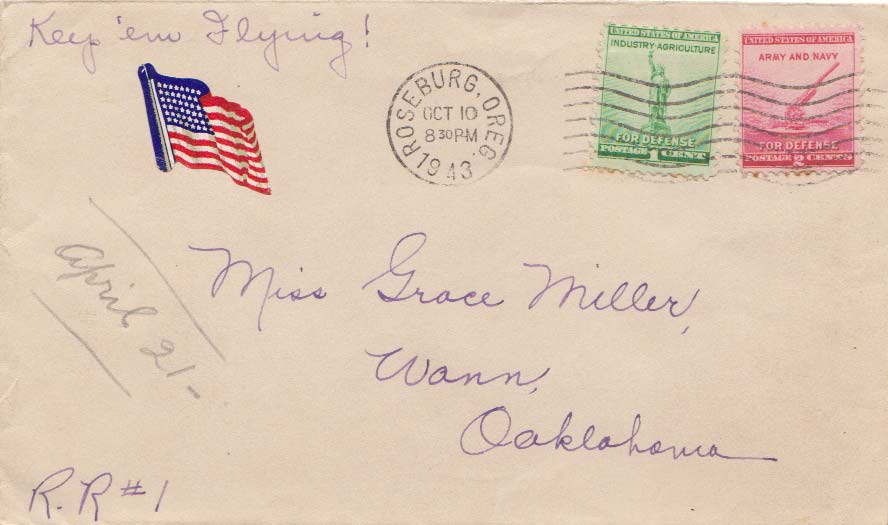 Keep 'em Flying!
ROSEBURG, OREG.
OCT 10
8 30 PM
1943
UNITED STATES OF AMERICA
INDUSTRY-AGRICULTURE
FOR DEFENSE
POSTAGE 1 CENT
UNITED STATES OF AMERICA
ARMY AND NAVY
FOR DEFENSE
POSTAGE 2 CENTS
april 21-
Miss Grace Miller,
Wann,
Oaklahoma
R.R #1